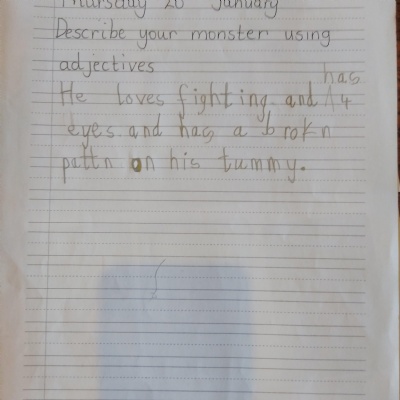 Thursday 20 January
Describe your monster using
adjectives
has
He loves fighting and ^ 4
eyes and has a brokn
pattn on his tummy.